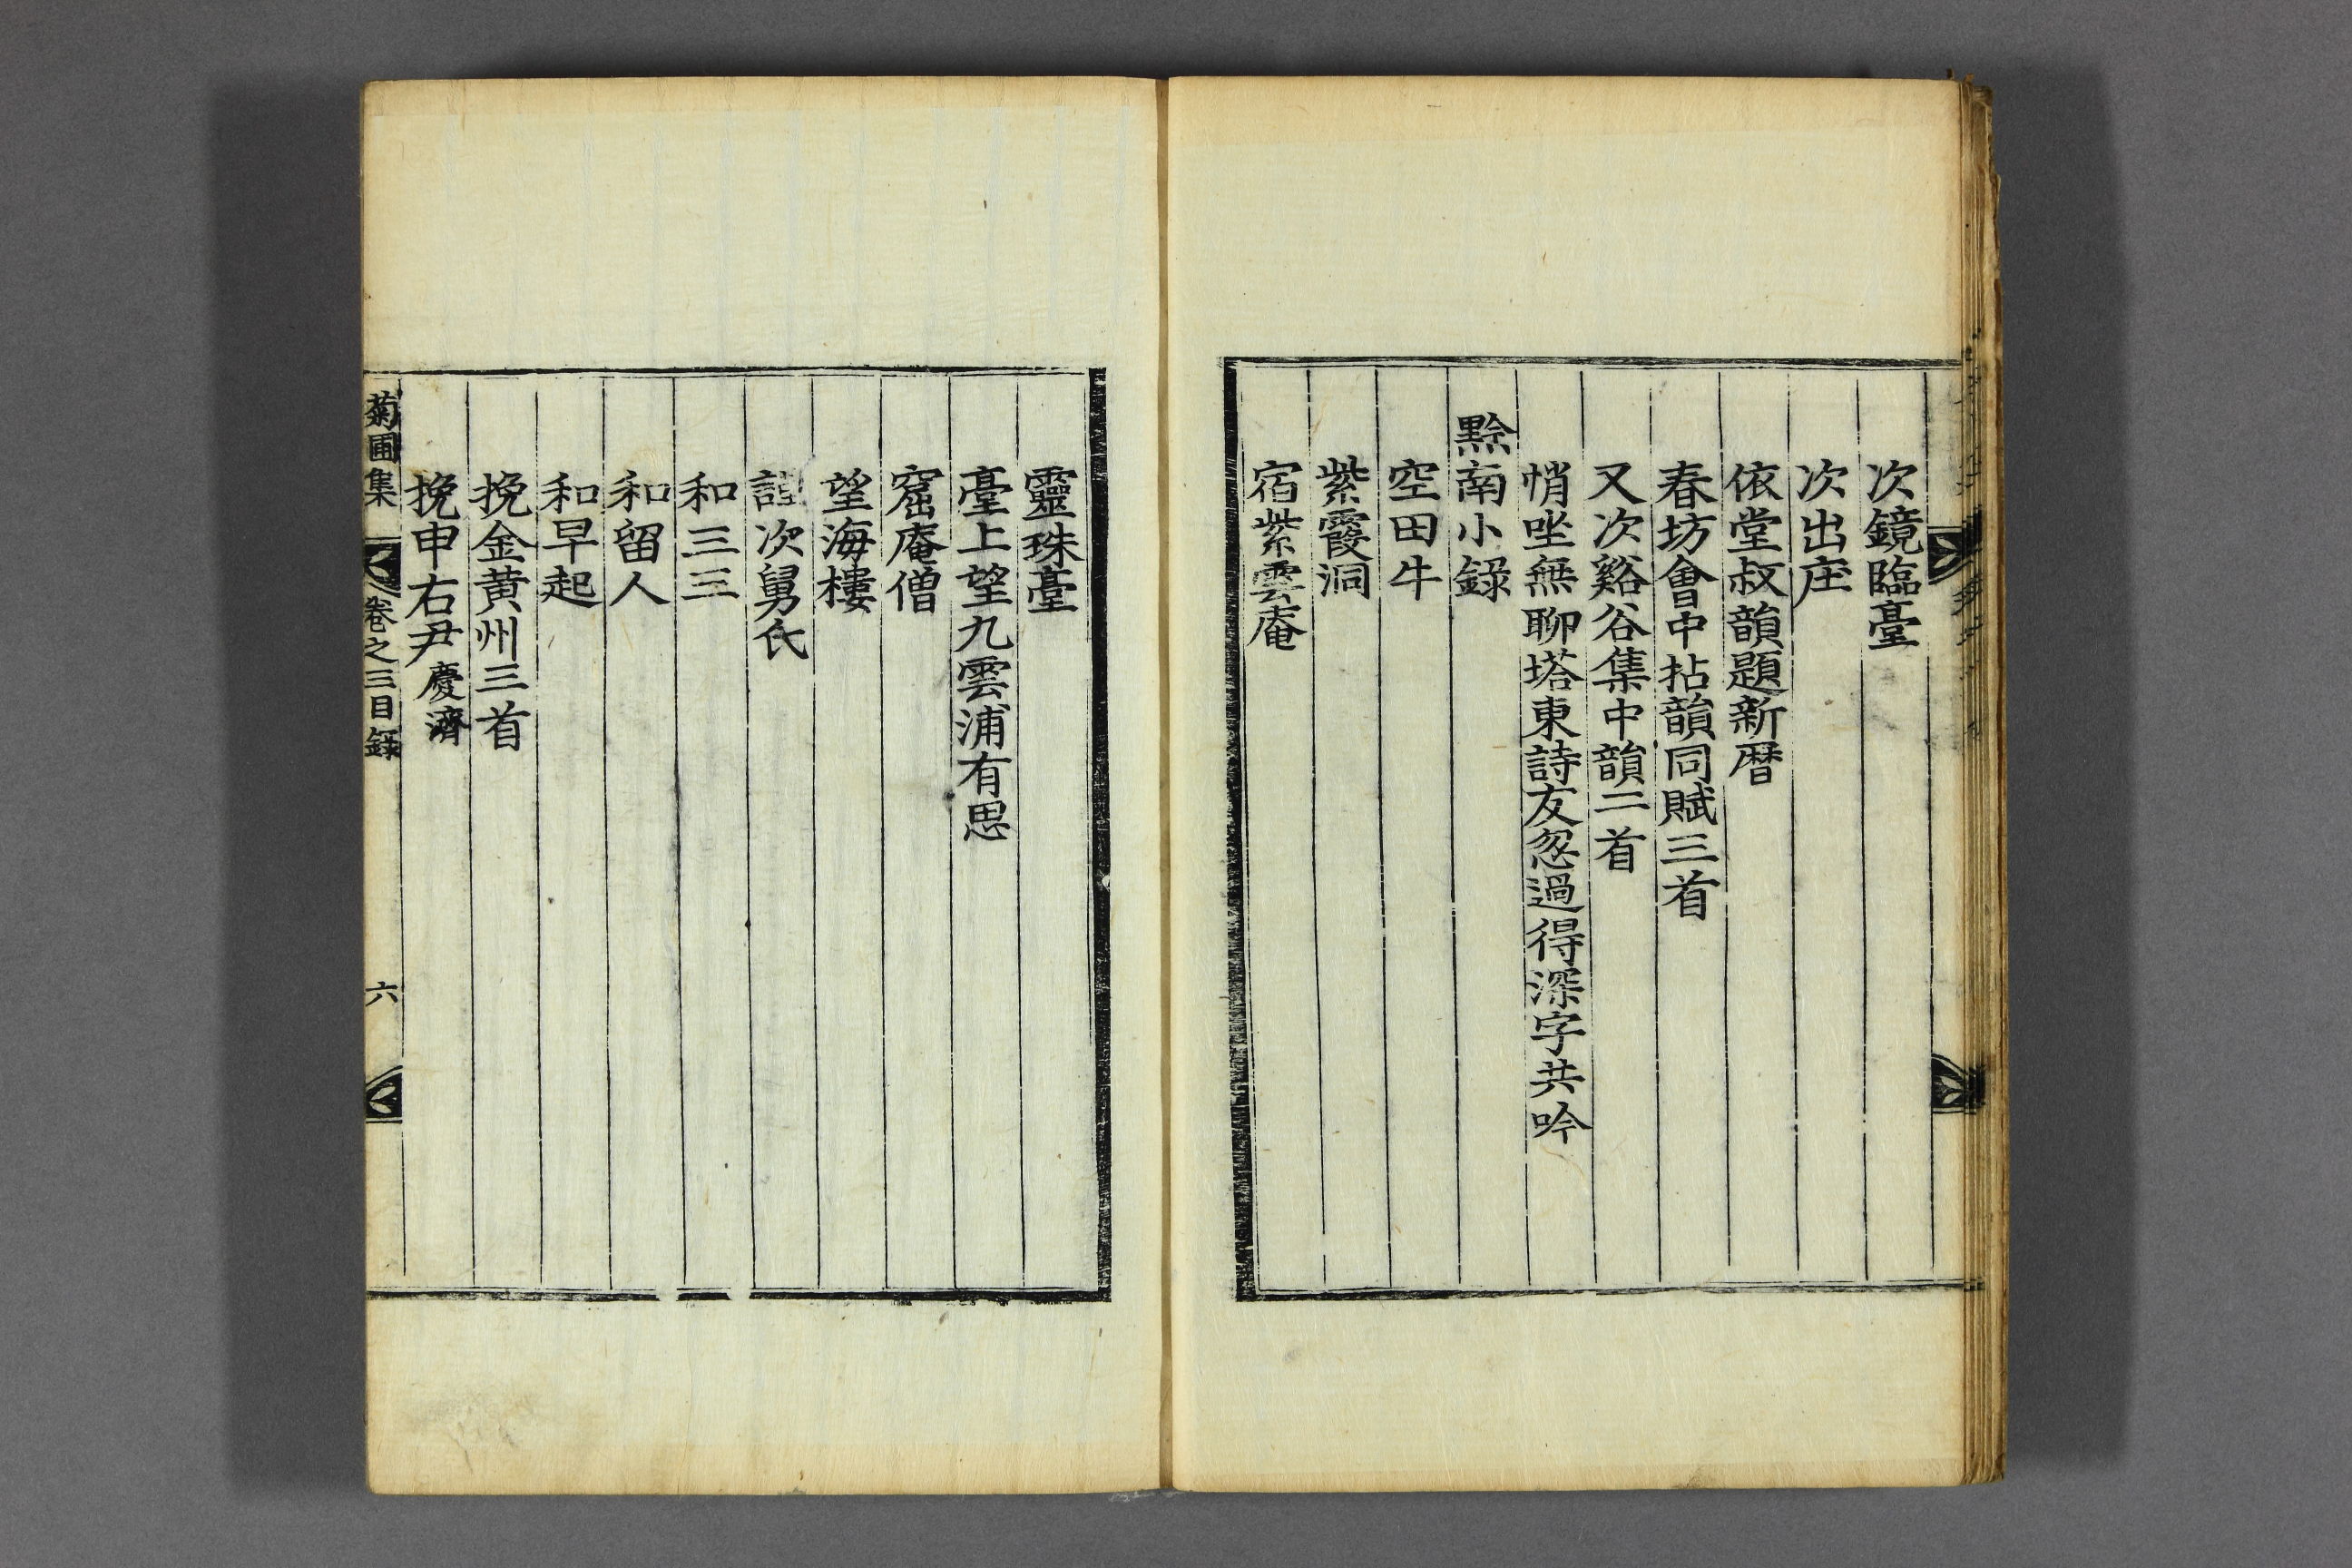 次鏡臨臺
次出庄
依堂叔韻題新曆
春坊會中拈韻同賦三首
又次谿谷集中韻二首
悄坐無聊塔東詩友忽過得深字共吟
黔南小錄
空田牛
紫霞洞
宿紫雲庵
靈珠臺
臺上望九雲浦有思
窟庵僧
望海樓
謹次舅氏
和三三
和留人
和早起
挽金黃州三首
挽申右尹慶濟
菊圃集 卷之三目錄 六